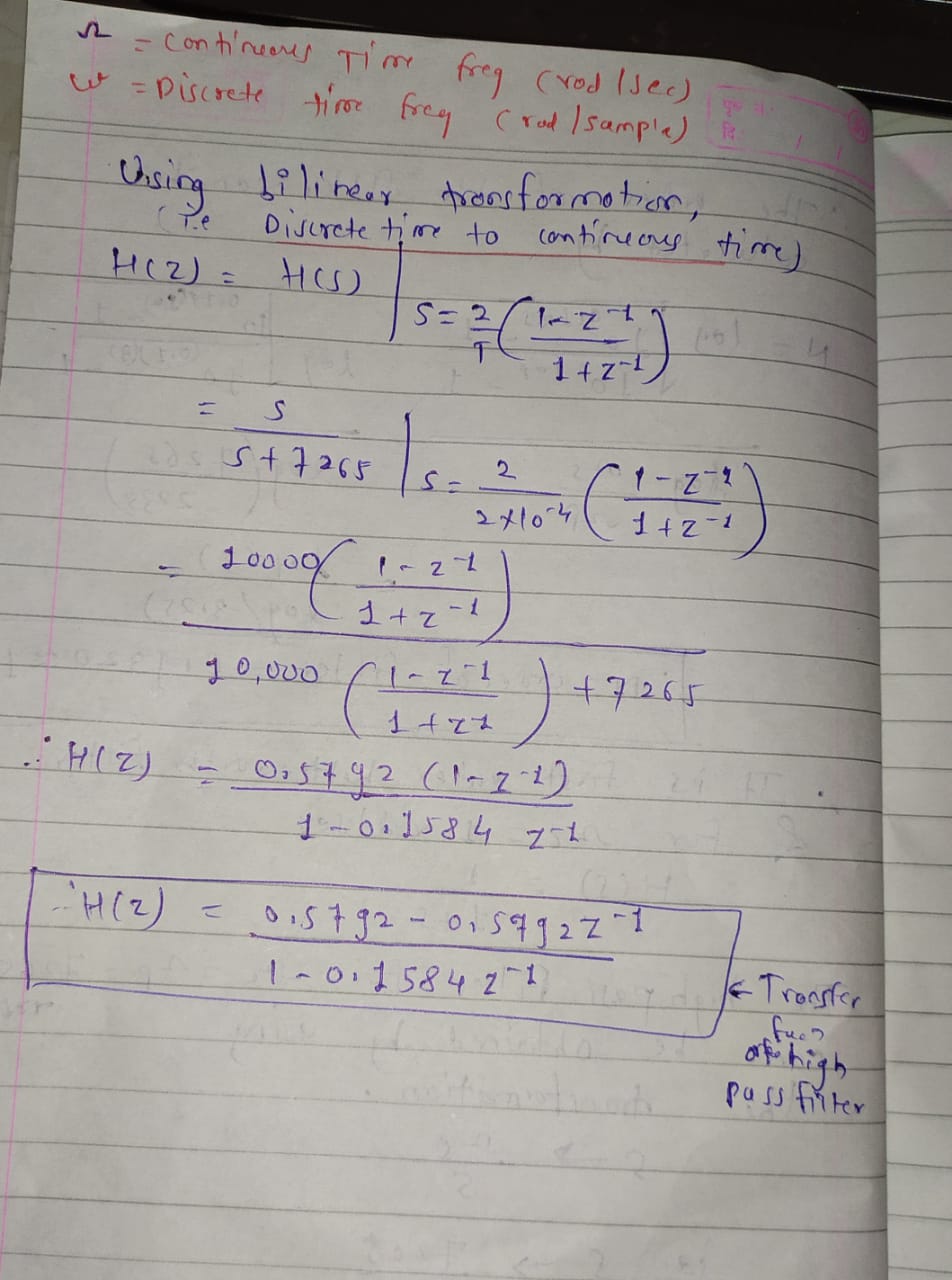 Ω = continuous Time freq (rad/sec)
ω = Discrete time freq (rad/sample)
Using bilinear transformation,
(i.e Discrete time to continuous time)
H(z) = H(s) | s = 2/T ( 1 - z^-1 / 1 + z^-1 )
= s / s + 7265 | s = 2 / 2×10^-4 ( 1 - z^-1 / 1 + z^-1 )
= 10000 ( 1 - z^-1 / 1 + z^-1 )
10,000 ( 1 - z^-1 / 1 + z^1 ) + 7265
∴ H(z) = 0.5792 (1 - z^-1)
1 - 0.1584 z^-1
∴ H(z) = 0.5792 - 0.5792 z^-1
1 - 0.1584 z^-1
← Transfer
func
of high
pass filter